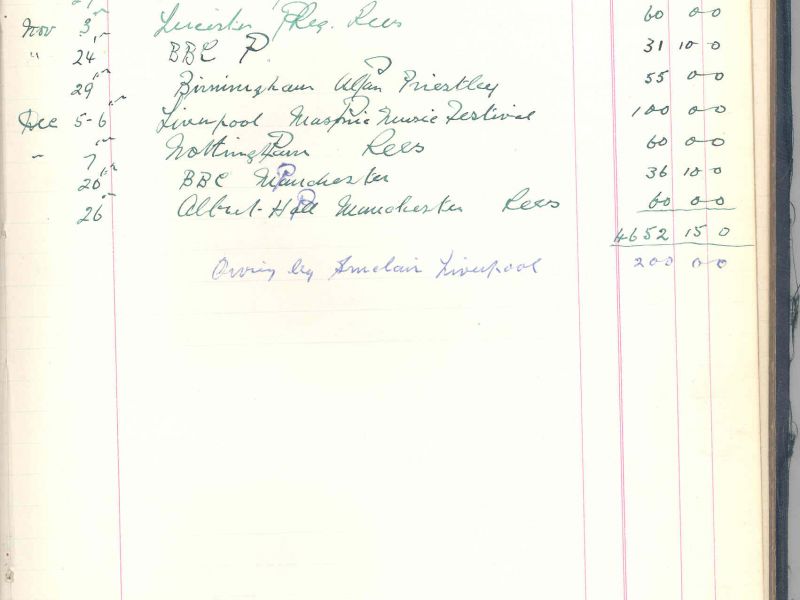 Nov 3rd Leicester Reg. Rees 60 0-0
" 24th BBC P 31 10-0
29th Birmingham Alan Priestley P 55 0-0
Dec 5-6th Liverpool Masonic Music Festival P 100 0-0
" 7th Nottingham P Rees 60 0-0
20th BBC Manchester P 36 10-0
26th Albert Hall Manchester P Rees 60 0-0
4652 15 0
Owing by Sinclair Liverpool 200 0-0